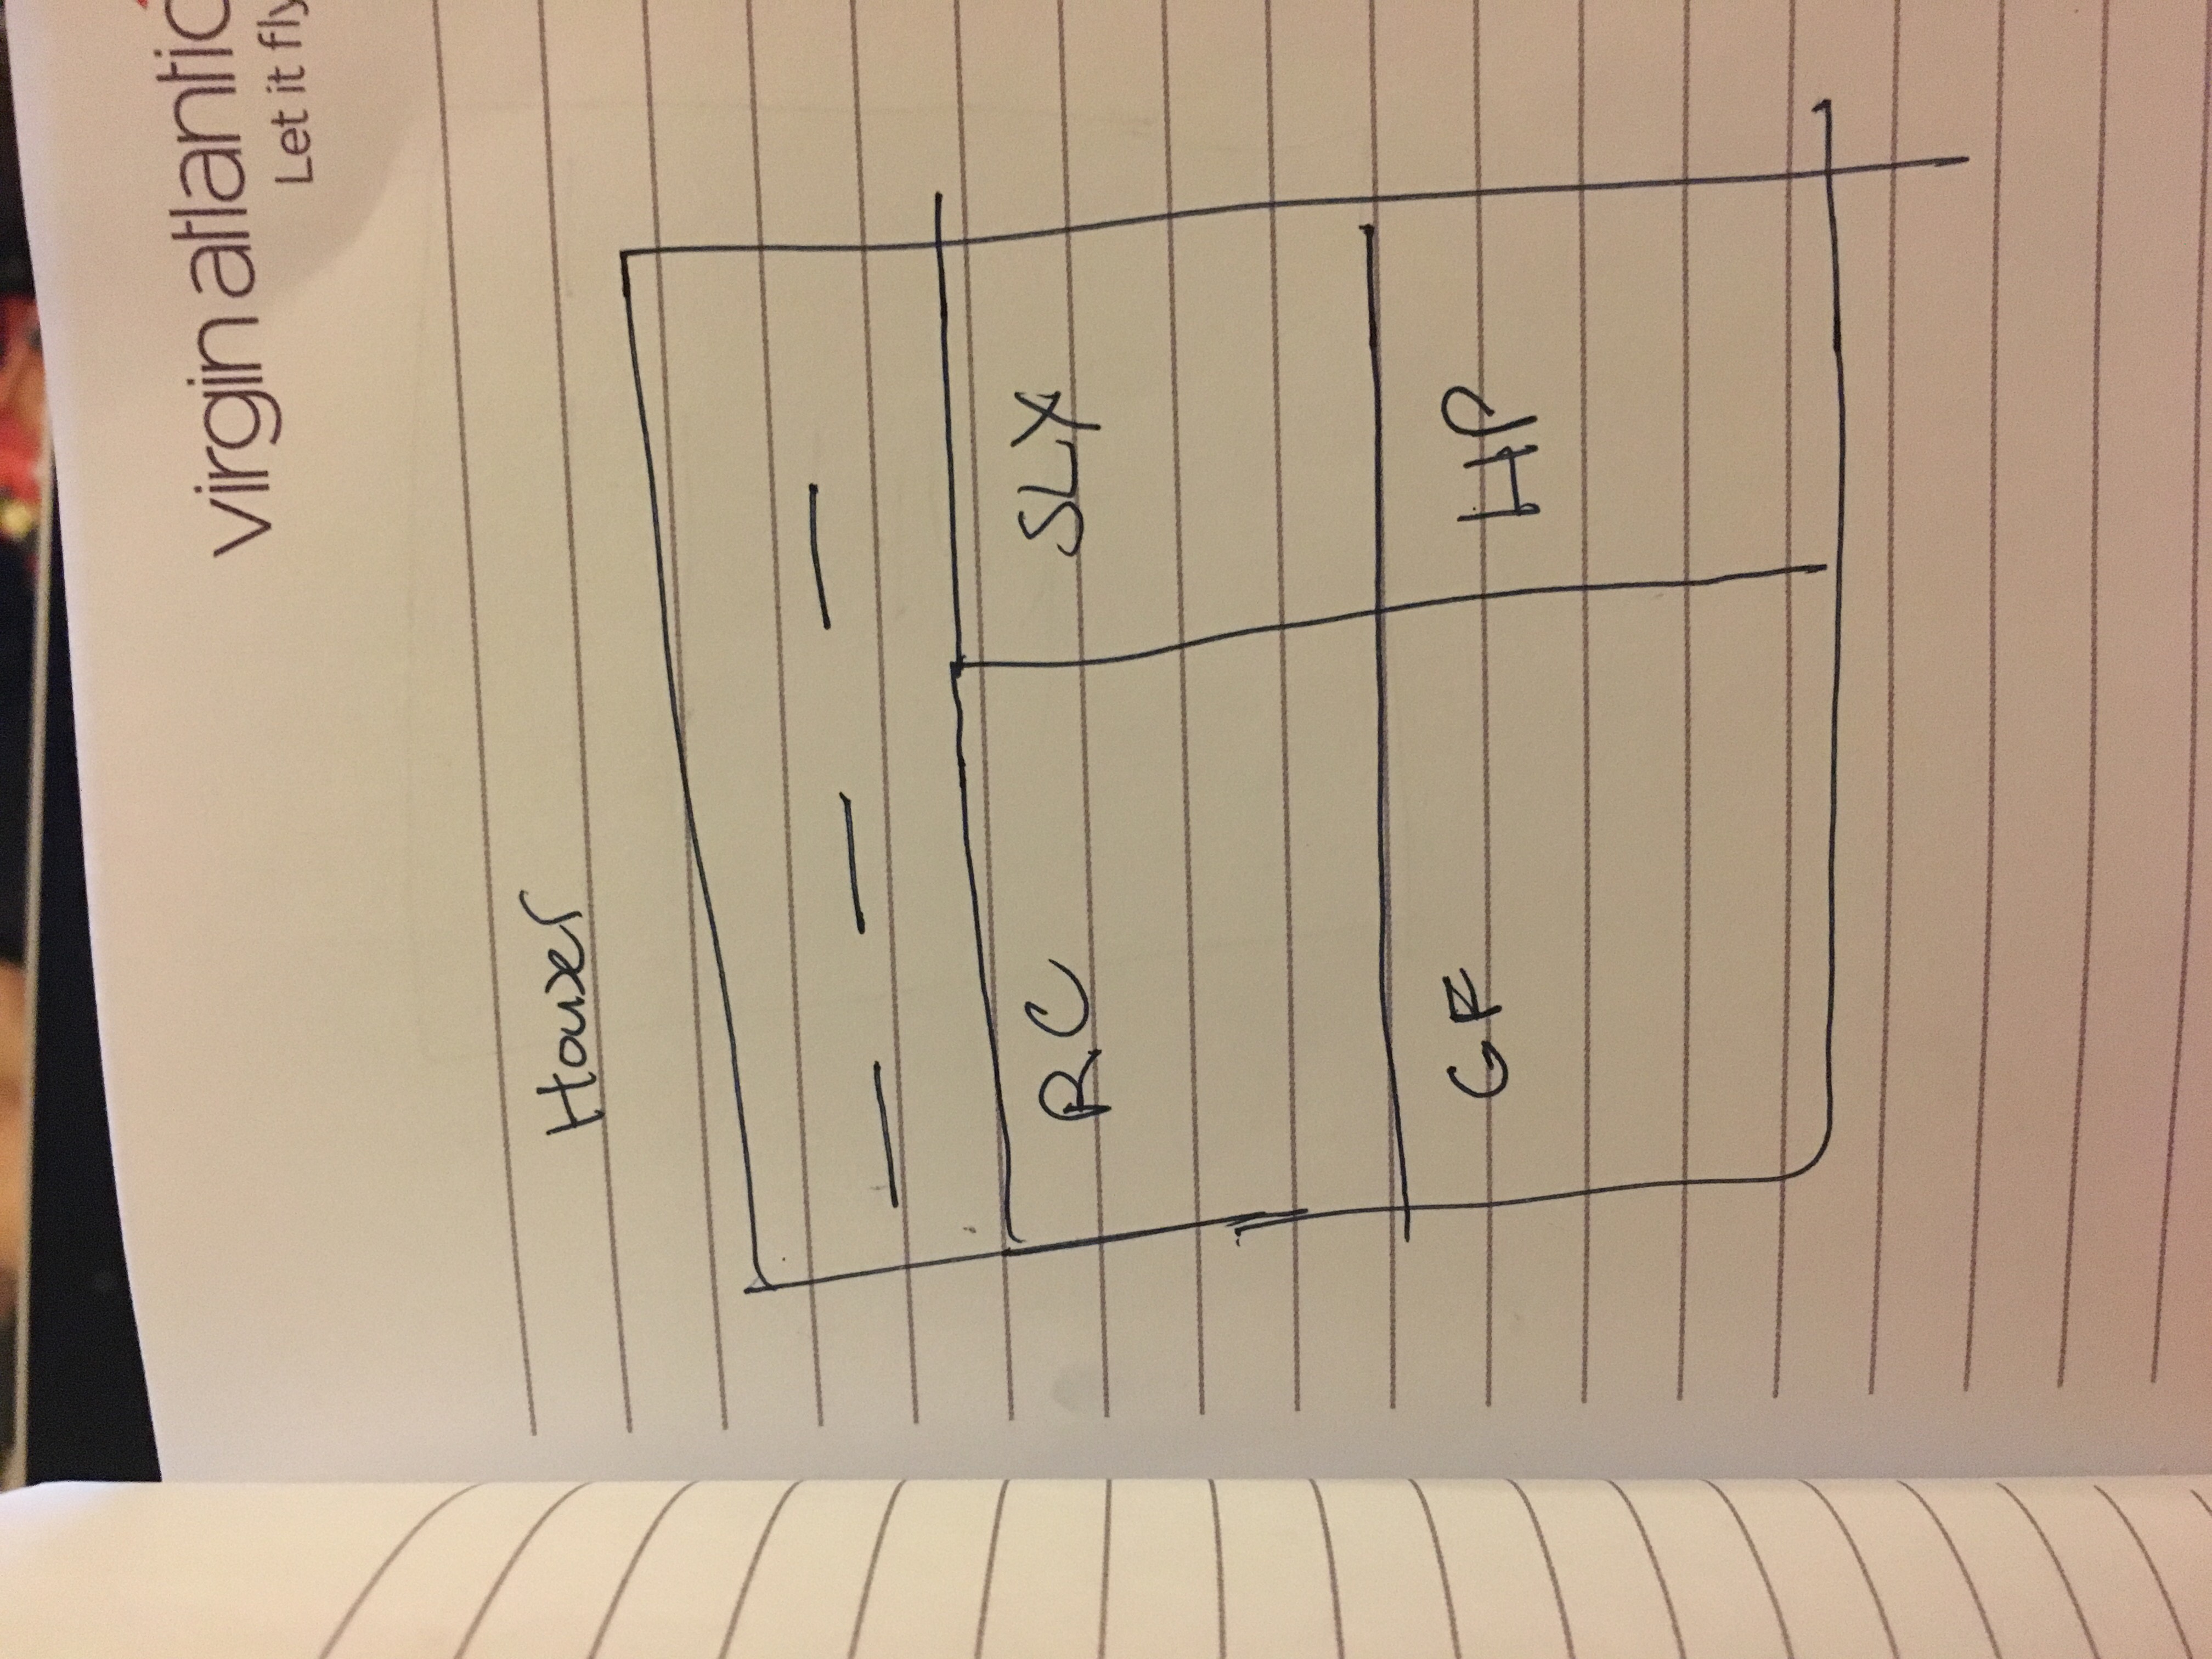 virgin atlantic
Let it fly
Houses
RC SLY
GF HP